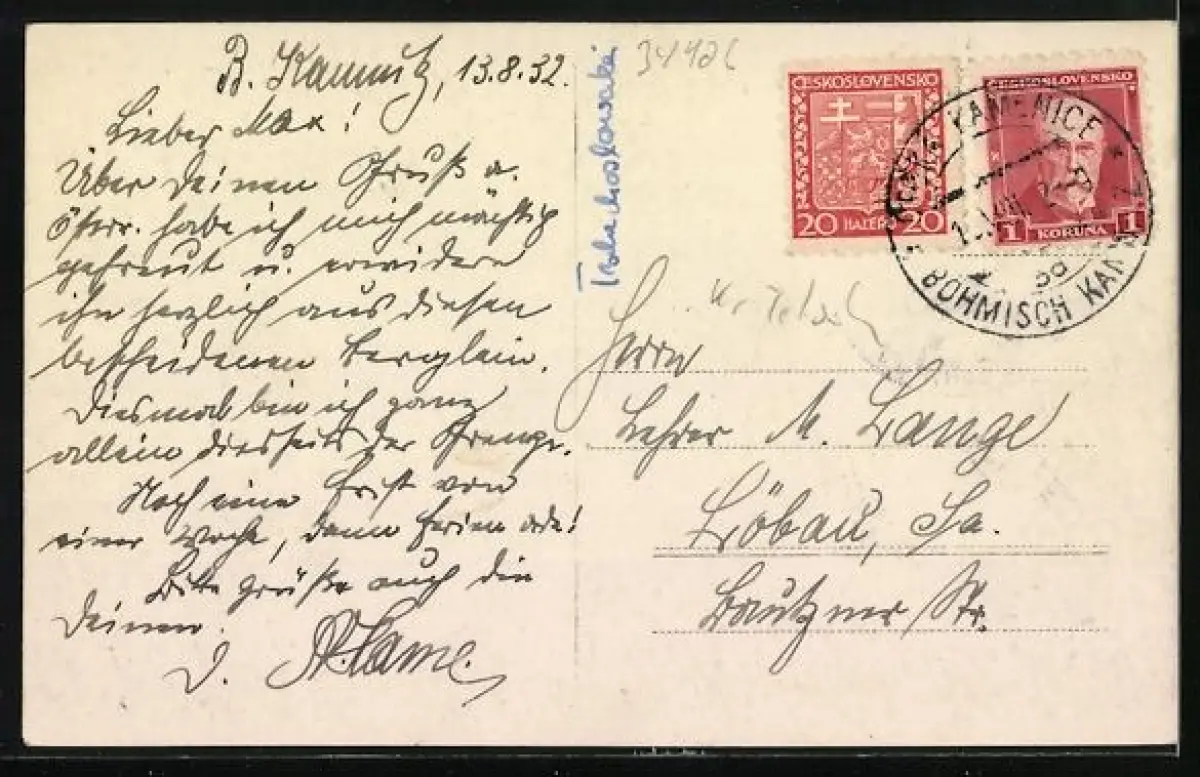 B. Kamnitz, 13.8.32.
Lieber Max!
Über Deinen Gruß a.
Österr. habe ich mich mächtig
gefreut u. erwidere
ihn herzlich aus diesem
bescheidenen Berglein.
Diesmal bin ich ganz
allein diesseits der Grenze.
Noch eine Frist von
einer Woche, dann Ferien ade!
Bitte grüße auch die
Deinen.
D.
Tschechoslowakei
34426
ČESKOSLOVENSKO
20 HALÉŘŮ 20
ČESKOSLOVENSKO
1 KORUNA 1
ČESKÁ KAMENICE
BÖHMISCH KAMNITZ
Herrn
Lehrer M. Lange
Löbau, Sa.
Bautzner Str.